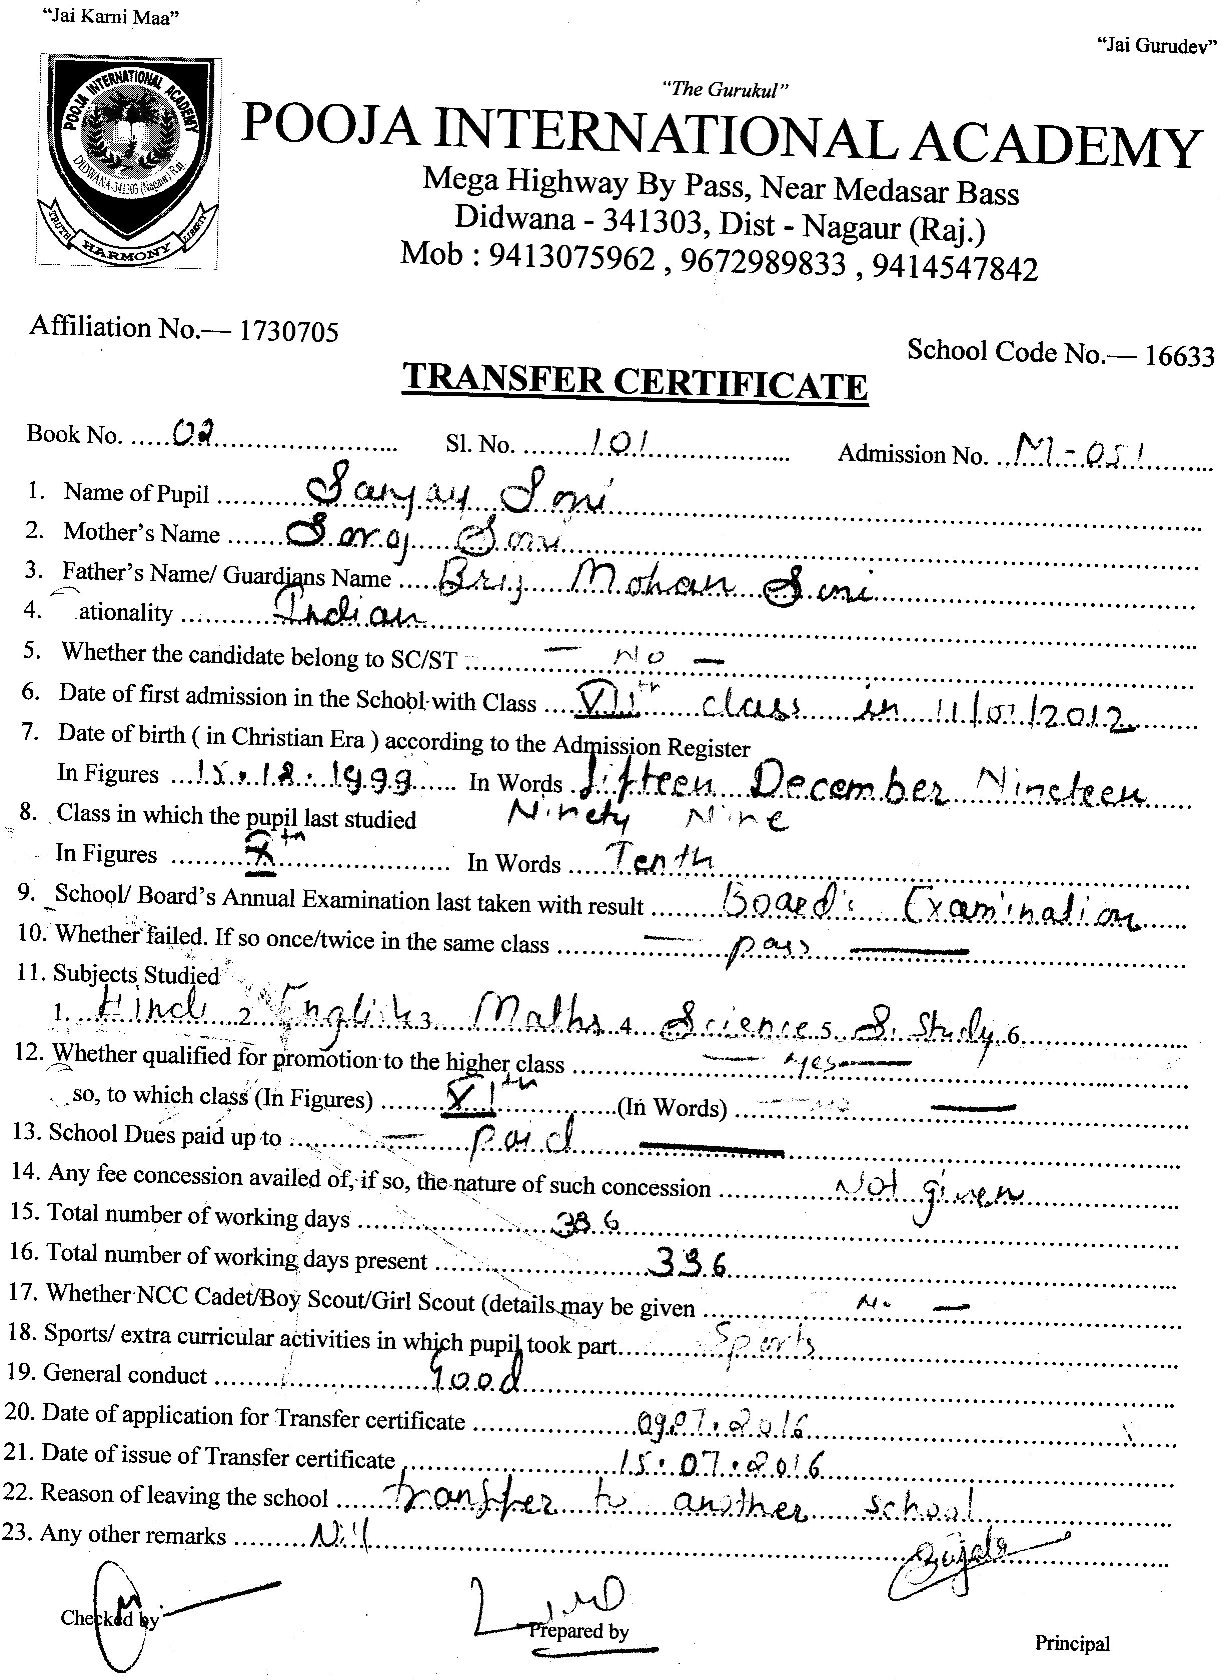 "Jai Karni Maa"
"Jai Gurudev"
POOJA INTERNATIONAL ACADEMY
DIDWANA-341303 (Nagaur) Raj.
TRUTH HARMONY LIBERTY
"The Gurukul"
POOJA INTERNATIONAL ACADEMY
Mega Highway By Pass, Near Medasar Bass
Didwana - 341303, Dist - Nagaur (Raj.)
Mob : 9413075962 , 9672989833 , 9414547842
Affiliation No.— 1730705
School Code No.— 16633
TRANSFER CERTIFICATE
Book No. 02 Sl. No. 101 Admission No. M-051
1. Name of Pupil Sanjay Soni
2. Mother's Name Saroj Soni
3. Father's Name/ Guardians Name Brij Mohan Soni
4. ationality Indian
5. Whether the candidate belong to SC/ST — No —
6. Date of first admission in the School with Class VIIth class in 11/07/2012
7. Date of birth ( in Christian Era ) according to the Admission Register
In Figures 15.12.1999 In Words fifteen December Nineteen
Ninety Nine
8. Class in which the pupil last studied
In Figures Xth In Words Tenth
9. School/ Board's Annual Examination last taken with result Board's Examination
10. Whether failed. If so once/twice in the same class — pass —
11. Subjects Studied
1. Hindi 2 English 3 Maths 4 Science 5 S. Study 6
12. Whether qualified for promotion to the higher class — yes —
so, to which class (In Figures) XIth (In Words) —
13. School Dues paid up to — paid —
14. Any fee concession availed of, if so, the nature of such concession Not given
15. Total number of working days 386
16. Total number of working days present 336
17. Whether NCC Cadet/Boy Scout/Girl Scout (details may be given No —
18. Sports/ extra curricular activities in which pupil took part Sports
19. General conduct Good
20. Date of application for Transfer certificate 09.07.2016
21. Date of issue of Transfer certificate 15.07.2016
22. Reason of leaving the school transfer to another school
23. Any other remarks Nill
Checked by
Prepared by
Principal